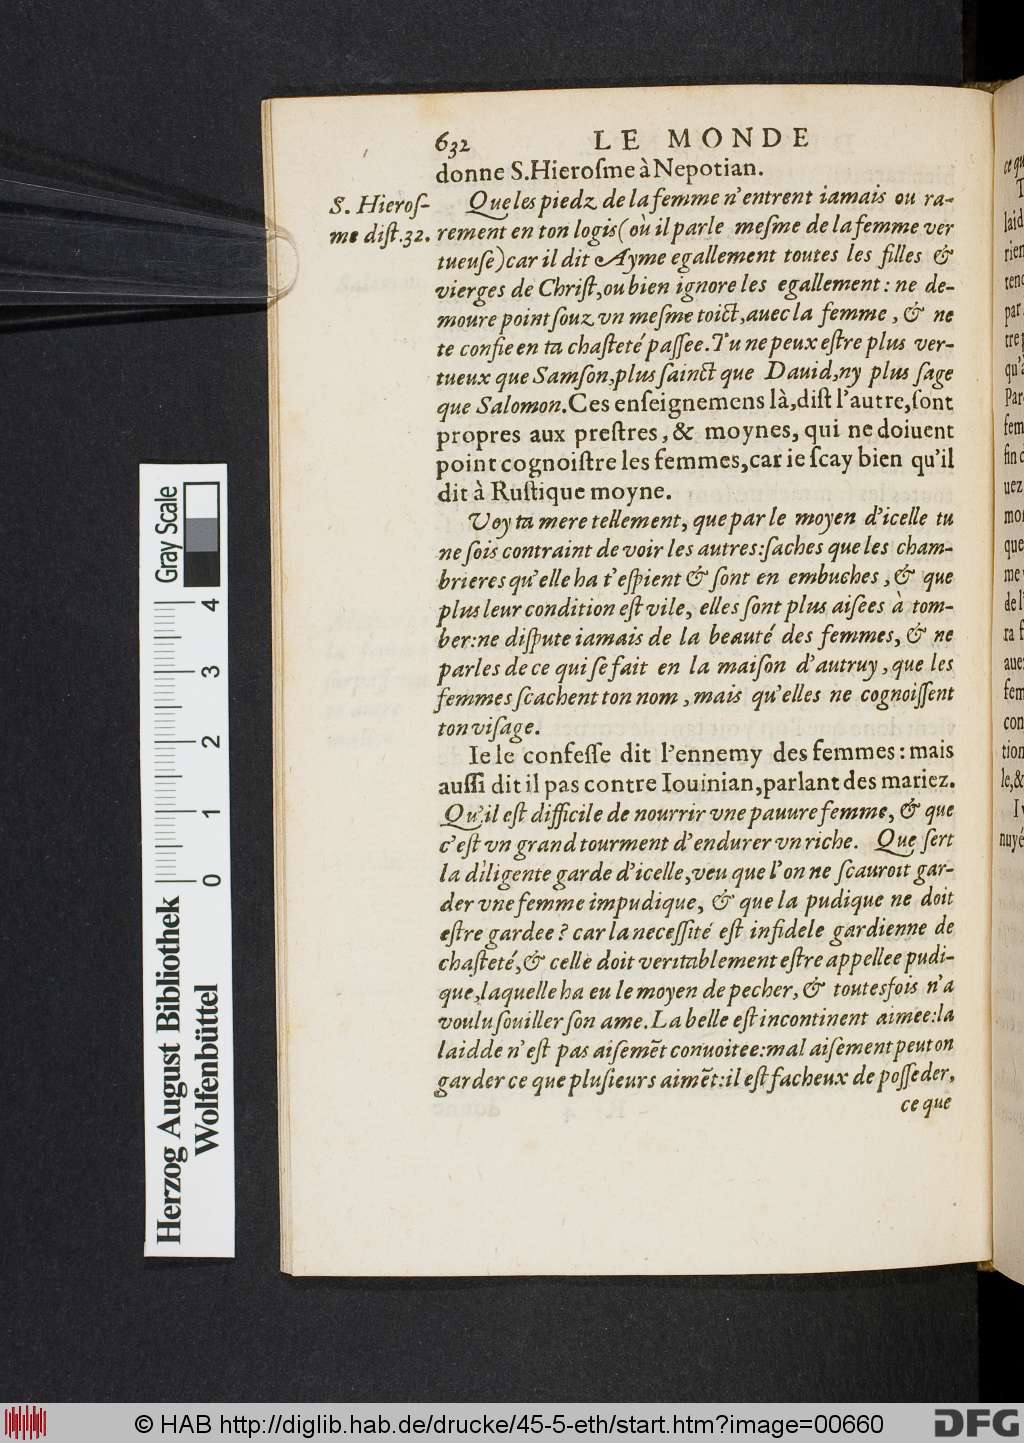 632 LE MONDE
donne S.Hieroſme à Nepotian.
S. Hieroſ-
me diſt.32.
Que les piedz de la femme n'entrent iamais ou ra-
rement en ton logis (où il parle meſme de la femme ver
tueuſe) car il dit Ayme egallement toutes les filles &
vierges de Chriſt, ou bien ignore les egallement: ne de-
moure point ſouz vn meſme toict, auec la femme, & ne
te confie en ta chaſteté paſſee. Tu ne peux eſtre plus ver-
tueux que Samſon, plus ſainct que Dauid, ny plus ſage
que Salomon. Ces enſeignemens là, diſt l'autre, ſont
propres aux preſtres, & moynes, qui ne doiuent
point cognoiſtre les femmes, car ie ſcay bien qu'il
dit à Ruſtique moyne.
Voy ta mere tellement, que par le moyen d'icelle tu
ne ſois contraint de voir les autres: ſaches que les cham-
brieres qu'elle ha t'eſpient & ſont en embuches, & que
plus leur condition eſt vile, elles ſont plus aiſees à tom-
ber: ne diſpute iamais de la beauté des femmes, & ne
parles de ce qui ſe fait en la maiſon d'autruy, que les
femmes ſcachent ton nom, mais qu'elles ne cognoiſſent
ton viſage.
Ie le confeſſe dit l'ennemy des femmes: mais
auſſi dit il pas contre Iouinian, parlant des mariez.
Qu'il eſt difficile de nourrir vne pauure femme, & que
c'eſt vn grand tourment d'endurer vn riche. Que ſert
la diligente garde d'icelle, veu que l'on ne ſcauroit gar-
der vne femme impudique, & que la pudique ne doit
eſtre gardee? car la neceſſité eſt infidele gardienne de
chaſteté, & celle doit veritablement eſtre appellee pudi-
que, laquelle ha eu le moyen de pecher, & toutesfois n'a
voulu ſouiller ſon ame. La belle eſt incontinent aimee: la
laidde n'eſt pas aiſemẽt conuoitee: mal aiſement peut on
garder ce que pluſieurs aimẽt: il eſt facheux de poſſeder,
ce que
Gray Scale
0 1 2 3 4
Herzog August Bibliothek
Wolfenbüttel
© HAB http://diglib.hab.de/drucke/45-5-eth/start.htm?image=00660
DFG